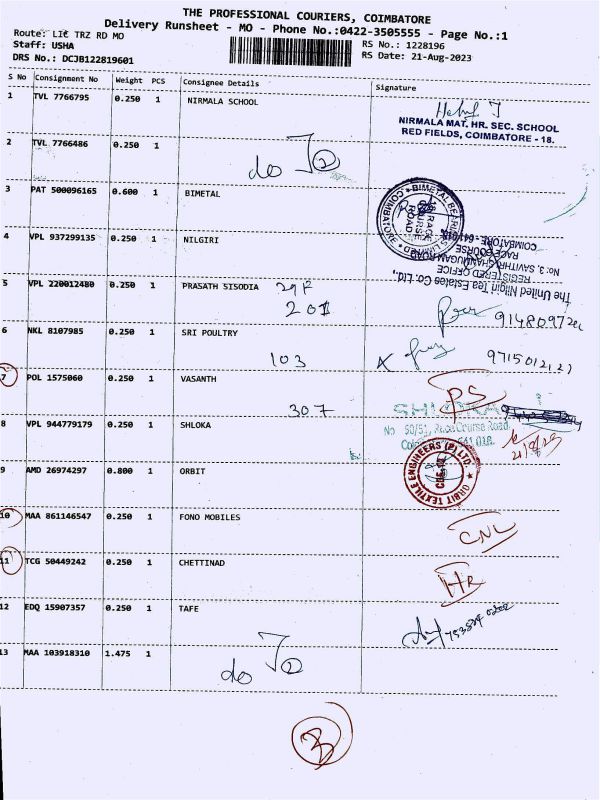 THE PROFESSIONAL COURIERS, COIMBATORE
Delivery Runsheet - MO - Phone No.:0422-3505555 - Page No.:1
Route: LIC TRZ RD MO
Staff: USHA
DRS No.: DCJB122819601
RS No.: 1228196
RS Date: 21-Aug-2023
S No Consignment No Weight PCS Consignee Details Signature
1 TVL 7766795 0.250 1 NIRMALA SCHOOL
NIRMALA MAT. HR. SEC. SCHOOL
RED FIELDS, COIMBATORE - 18.
2 TVL 7766486 0.250 1
do
3 PAT 500096165 0.600 1 BIMETAL
4 VPL 937299135 0.250 1 NILGIRI
The United Nilgiri Tea Estates Co. Ltd.,
REGISTERED OFFICE
No: 3, SAVITHRI SHANMUGAM ROAD
RACE COURSE
COIMBATORE - 641018
5 VPL 220012480 0.250 1 PRASATH SISODIA
201
6 NKL 8107985 0.250 1 SRI POULTRY
103
7 POL 1575060 0.250 1 VASANTH PS
307
8 VPL 944779179 0.250 1 SHLOKA
SHLOKA
No 50/51, Race Course Road,
21/8/23
9 AMD 26974297 0.800 1 ORBIT
ORBIT TEXTILE ENGINEERS (P) LTD.
10 MAA 861146547 0.250 1 FONO MOBILES CNL
11 TCG 50449242 0.250 1 CHETTINAD HR
12 EDQ 15907357 0.250 1 TAFE
13 MAA 103918310 1.475 1
do
3